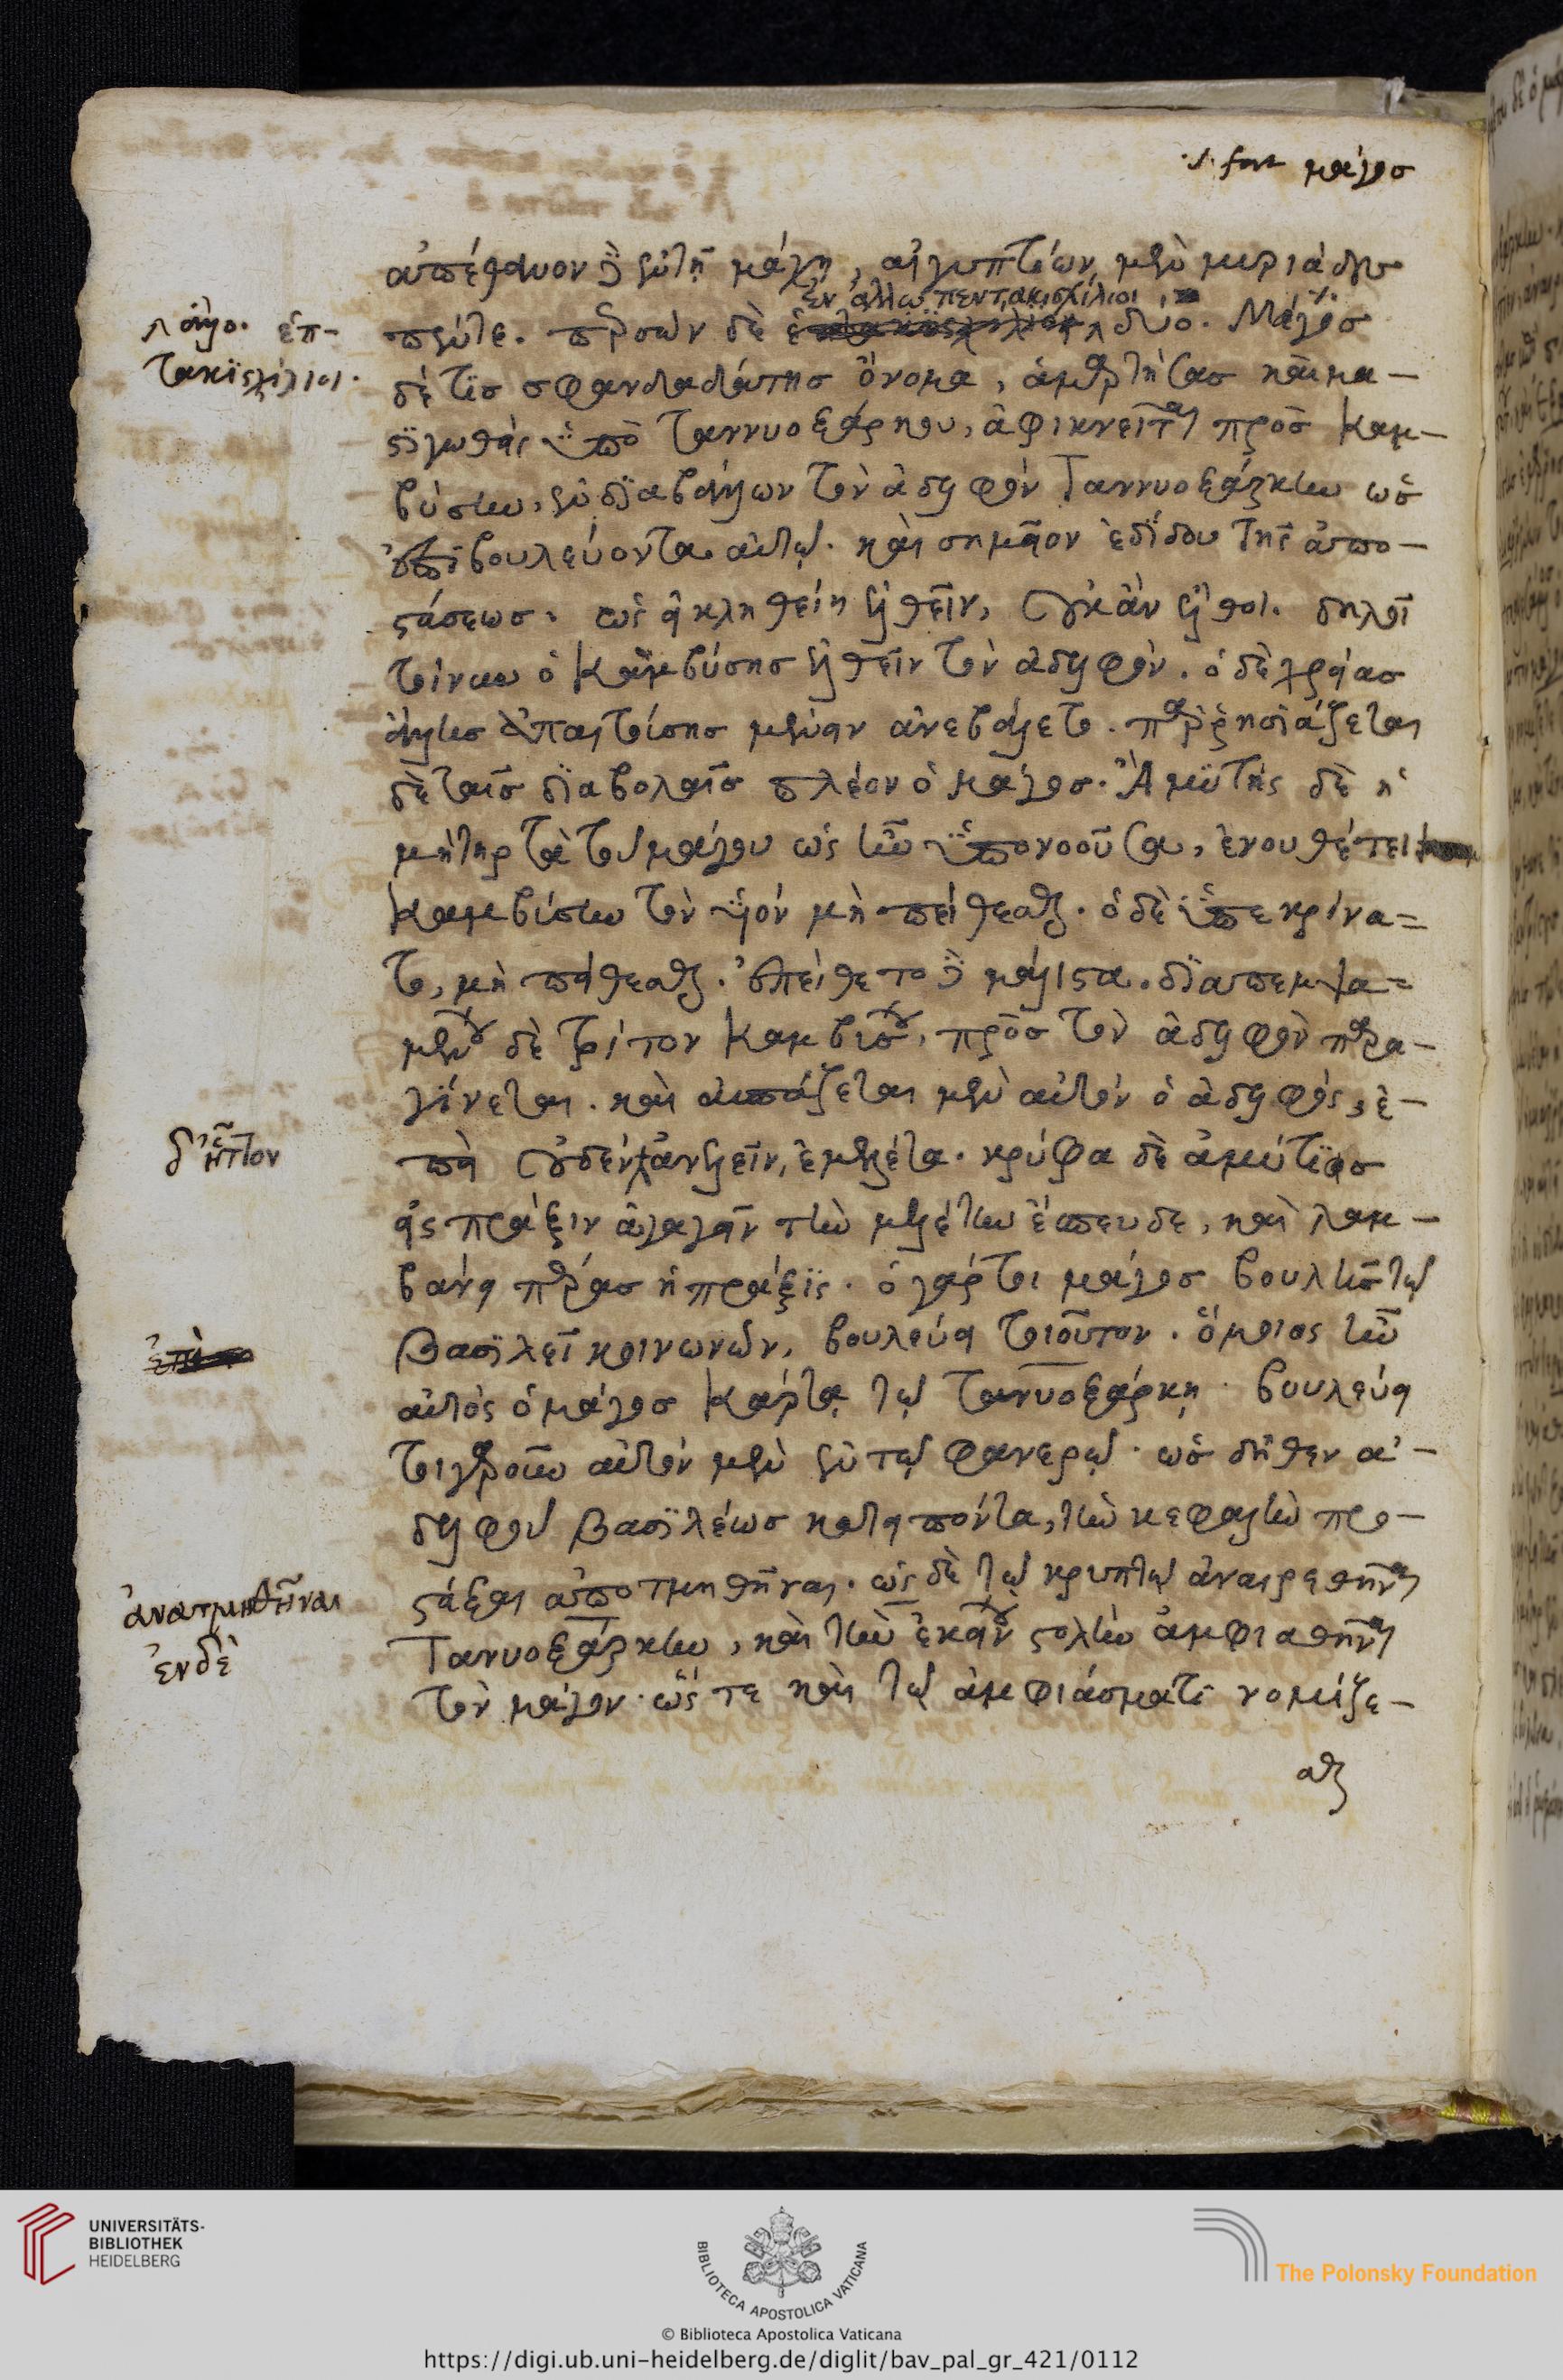 .s. fort μάγοσ
ἀπέθανον γὰρ ἐν τῆ μάχη, αἰγυπτίων μὲν μυριάδεσ
ἐν ἄλλω πεντακισχίλιοι
πέντε. περσῶν δὲ δύο. Μάγοσ
λ ἄλλο. ἑπ-
τακϊσχίλιοι.
δέ τϊσ σφενδαδάτησ ὄνομα, ἁμαρτήσασ καὶ μα-
στϊγωθεὶς ὑπὸ τανυοξάρκου, ἀφικνεῖται πρὸσ Καμ-
βύσην, ἐνδϊαβάλλων τὸν ἀδελφὸν Τανυοξάρκην ὡσ
ἐπιβουλεύοντα αὐτῷ. καὶ σημεῖον ἐδίδου τῆς ἀπο-
στάσεωσ. ὡς εἰ κληθείη ἐλθεῖν, οὐκ ἂν ἔλθοι. δηλοῖ
τοίνυν ὁ Καμβύσησ ἐλθεῖν τὸν ἀδελφόν. ὁ δὲ χρείασ
ἄλλησ ἀπαιτούσησ μένειν ἀνεβάλλετο. παρρησϊάζεται
δὲ ταῖσ δϊαβολαῖσ πλέον ὁ μάγοσ. Ἀμϋτὶς δὲ ἡ
μήτηρ τὰ τοῦ μάγου ὡς ἦν ὑπονοοῦσα, ἐνουθέτει
Καμβύσην τὸν υἱὸν μὴ πείθεσθαι. ὁ δὲ ὑπεκρίνα=
το, μὴ πείθεσθαι. ἐπείθετο γὰρ μάλιστα. δϊαπεμψα=
μένου δὲ τρίτον Καμβύσου, πρὸσ τὸν ἀδελφὸν παρα-
γίνεται. καὶ ἀσπάζεται μὲν αὐτὸν ὁ ἀδελφός, ἐ-
δ' ἧττον
πεὶ οὐδὲν ἀνελεῖν, ἐμελέτα. κρύφα δὲ ἀμύτϊοσ
εἰς πρᾶξιν ἀγαγεῖν τὴν μελέτην ἔσπευδε, καὶ λαμ-
βάνει πέρασ ἡ πρᾶξϊς. ὁ γάρ τοι μάγοσ βουλῆσ τῷ
βασϊλεῖ κοινωνῶν, βουλεύει τοιοῦτον. ὅμοιος ἦν
αὐτὸς ὁ μάγοσ κάρτα τῷ τανυοξάρκῃ. βουλεύει
τοιγαροῦν αὐτὸν μὲν ἐν τῷ φανερῷ. ὡσ δῆθεν ἀ-
δελφοῦ βασϊλέωσ κατειπόντα, τὴν κεφαλὴν προ-
στάξαι ἀποτμηθῆναι. ὡς δὲ τῷ κρυπτῷ ἀναιρεθῆναι
ἀνατμηθῆναι
ἐν δὲ
Τανυοξάρκην, καὶ τὴν ἐκείνου στολὴν ἀμφιαθῆναι
τὸν μάγον. ὥς τε καὶ τῷ ἀμφιάσματι νομίζε-
σθαι
UNIVERSITÄTS-
BIBLIOTHEK
HEIDELBERG
BIBLIOTECA APOSTOLICA VATICANA
The Polonsky Foundation
© Biblioteca Apostolica Vaticana
https://digi.ub.uni-heidelberg.de/diglit/bav_pal_gr_421/0112